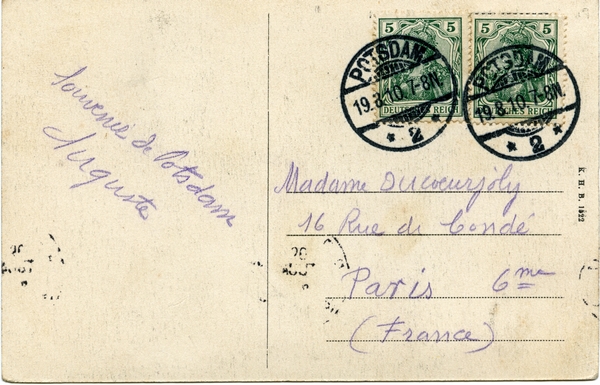 Souvenir de Potsdam
Auguste
5 5 5 5
POTSDAM
19.8.10.7-8N.
* 2 *
DEUTSCHES REICH
POTSDAM
19.8.10.7-8N.
* 2 *
REICH
Madame Ducoeurjoly
16 Rue de Condé
Paris 6me
(France)
K. H. B. 1522